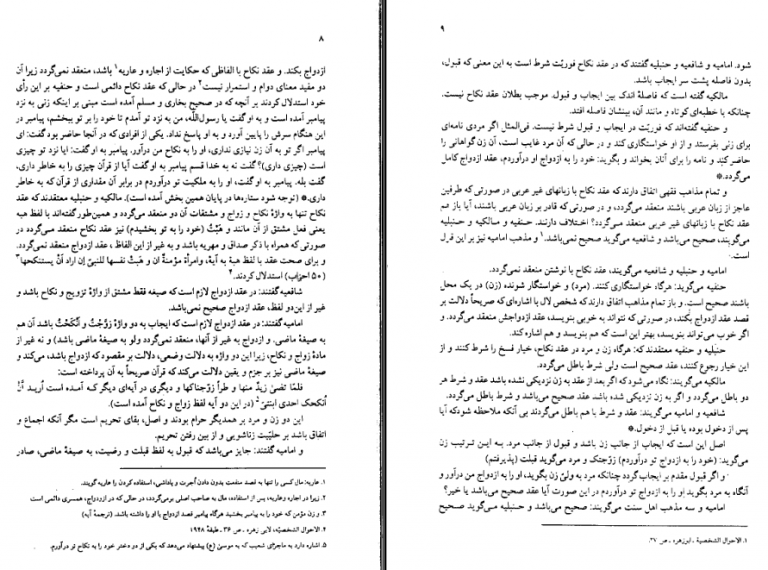 ۸
ازدواج بکند. و عقد نکاح با الفاظی که حکایت از اجاره و عاریه۱ باشد، منعقد نمی‌گردد زیرا آن
دو مفید معنای دوام و استمرار نیست۲ در حالی که عقد نکاح دائمی است و حنفیه بر این رأی
خود استدلال کردند بر آنچه که در صحیح بخاری و مسلم آمده است مبنی بر اینکه زنی به نزد
پیامبر آمده است و به او گفت یا رسول‌الله، من به نزد تو آمدم تا خود را بر تو ببخشم، پیامبر در
این هنگام سرش را پایین آورد و به او پاسخ نداد. یکی از افرادی که در آنجا حاضر بود گفت: ای
پیامبر اگر تو به آن زن نیازی نداری، او را به نکاح من درآور. پیامبر به او گفت: آیا نزد تو چیزی
است (چیزی داری)؟ گفت نه به خدا قسم پیامبر به او گفت آیا از قرآن چیزی را به خاطر داری.
گفت بله. پیامبر به او گفت، او را به ملکیت تو درآوردم در برابر آن مقداری از قرآن که به خاطر
داری.* (توجه شود ستاره‌ها در پایان همین بخش آمده است). مالکیه و حنبلیه معتقدند که عقد
نکاح تنها به واژۀ نکاح و زواج و مشتقات آن دو منعقد می‌گردد و همین‌طور گفته‌اند با لفظ هبه
یعنی فعل مشتق از آن مانند و هَبْتُ (خود را به تو بخشیدم) نیز عقد نکاح منعقد می‌گردد در
صورتی که همراه با ذکر صداق و مهریه باشد و به غیر از این الفاظ، عقد ازدواج منعقد نمی‌گردد.
و برای صحت عقد با لفظ هبة به آیة، وامرأة مؤمنة ان و هَبتْ نفسها للنبیّ إن اراد أنْ یستنکحها۳
(۵۰ احزاب) استدلال کردند.
شافعیه گفتند: در عقد ازدواج لازم است که صیغه فقط مشتق از واژۀ تزویج و نکاح باشد و
غیر از این دو لفظ، عقد ازدواج صحیح نمی‌باشد.
امامیه گفتند: در عقد ازدواج لازم است که ایجاب به دو واژۀ زَوَّجْتُ و أَنْکَحْتُ باشد آن هم
به صیغۀ ماضی. و ازدواج به غیر از آنها، منعقد نمی‌گردد ولو به صیغۀ ماضی باشد) و نه غیر از
مادۀ زواج و نکاح، زیرا این دو واژه به دلالت وضعی، دلالت بر مقصود که ازدواج باشد، می‌کند و
صیغۀ ماضی نیز بر جزم و یقین دلالت می‌کند که قرآن صریحاً به آن پرداخته است:
فلمّا قضیٰ زیدٌ منها و طراً زوّجناکها و دیگری در آیه‌ای دیگر که آمده است اُریدُ أنْ
اُنکحک احدی ابنتیّ۵ (در این دو آیه لفظ زواج و نکاح آمده است).
این دو زن و مرد بر همدیگر حرام بودند و اصل، بقای تحریم است مگر آنکه اجماع و
اتفاق باشد بر حلیّیت زناشویی و از بین رفتن تحریم.
و امامیه گفتند: جایز می‌باشد که قبول به لفظ قبلت و رضیت، به صیغۀ ماضی، صادر
۱. عاریه: مال کسی را تنها به قصد منفعت بدون دادن اُجرت و پاداشی، استفاده کردن را عاریه گویند.
۲. زیرا در اجاره و عاریه، پس از استفاده، مال به صاحب اصلی برمی‌گردد، در حالی که در ازدواج، همسری دائمی است
۳. و زن مؤمن که خود را به پیامبر ببخشید هرگاه پیامبر قصد ازدواج با او را داشته باشد. (ترجمۀ آیه)
۴. الاحوال الشخصیّه، لابی زهره، ص ۳۶، طبعۀ ۱۹۴۸
۵. اشاره دارد به ماجرای شعیب که به موسیٰ (ع) پیشنهاد می‌دهد که یکی از دو دختر خود را به نکاح تو درآورم.
۹
شود. امامیه و شافعیه و حنبلیه گفتند که در عقد نکاح فوریّت شرط است به این معنی که قبول،
بدون فاصله پشت سر ایجاب باشد.
مالکیه گفته است که فاصلۀ اندک بین ایجاب و قبول، موجب بطلان عقد نکاح نیست.
چنانکه با خطبه‌ای کوتاه و مانند آن، بینشان فاصله افتد.
و حنفیه گفته‌اند که فوریّت در ایجاب و قبول شرط نیست. فی‌المثل اگر مردی نامه‌ای
برای زنی بفرستد و از او خواستگاری کند و در حالی که آن مرد غایب است، آن زن گواهانی را
حاضر کند و نامه را برای آنان بخواند و بگوید: خود را به ازدواج او درآوردم، عقد ازدواج کامل
می‌گردد.*
و تمام مذاهب فقهی اتفاق دارند که عقد نکاح با زبانهای غیر عربی در صورتی که طرفین
عاجز از زبان عربی باشند منعقد می‌گردد، و در صورتی که قادر بر زبان عربی باشند، آیا باز هم
عقد نکاح با زبانهای غیر عربی منعقد می‌گردد؟ اختلاف دارند. حنفیه و مالکیه و حنبلیه
می‌گویند، صحیح می‌باشد و شافعیه می‌گوید صحیح نمی‌باشد.۱ و مذهب امامیه نیز بر این قول
است.
امامیه و حنبلیه و شافعیه می‌گویند، عقد نکاح با نوشتن منعقد نمی‌گردد.
حنفیه می‌گوید: هرگاه، خواستگاری کنند. (مرد) و خواستگار شونده (زن) در یک محل
باشند صحیح است. و باز تمام مذاهب اتفاق دارند که شخص لال با اشاره‌ای که صریحاً دلالت بر
قصد عقد ازدواج بکند، در صورتی که نتواند به خوبی بنویسد، عقد ازدواجش منعقد می‌گردد. و
اگر خوب می‌تواند بنویسد، بهتر این است که هم بنویسد و هم اشاره کند.
حنبلیه و حنفیه معتقدند که: هرگاه زن و مرد در عقد نکاح، خیار فسخ را شرط کنند و از
این خیار رجوع کنند، عقد صحیح است ولی شرط باطل می‌گردد.
مالکیه می‌گویند: نگاه می‌شود که اگر بعد از عقد به زن نزدیکی نشده باشد عقد و شرط هر
دو باطل می‌گردد و اگر به زن نزدیکی شده باشد عقد صحیح می‌باشد و شرط باطل می‌گردد.
شافعیه و امامیه می‌گویند: عقد و شرط با هم باطل می‌گردند بی آنکه ملاحظه شود که آیا
پس از دخول بوده یا قبل از دخول.*
اصل این است که ایجاب از جانب زن باشد و قبول از جانب مرد. به این ترتیب زن
می‌گوید: (خود را به ازدواج تو درآوردم) زوّجتک و مرد می‌گوید قبلت (پذیرفتم)
و اگر قبول مقدم بر ایجاب گردد چنانکه مرد به ولیّ زن بگوید، او را به ازدواج من درآور و
آنگاه به مرد بگوید او را به ازدواج تو درآوردم در این صورت آیا عقد صحیح می‌باشد یا خیر؟
امامیه و سه مذهب اهل سنت می‌گویند: صحیح می‌باشد و حنبلیه می‌گوید صحیح
۱. الاحوال الشخصیة، ابوزهره، ص ۲۷.